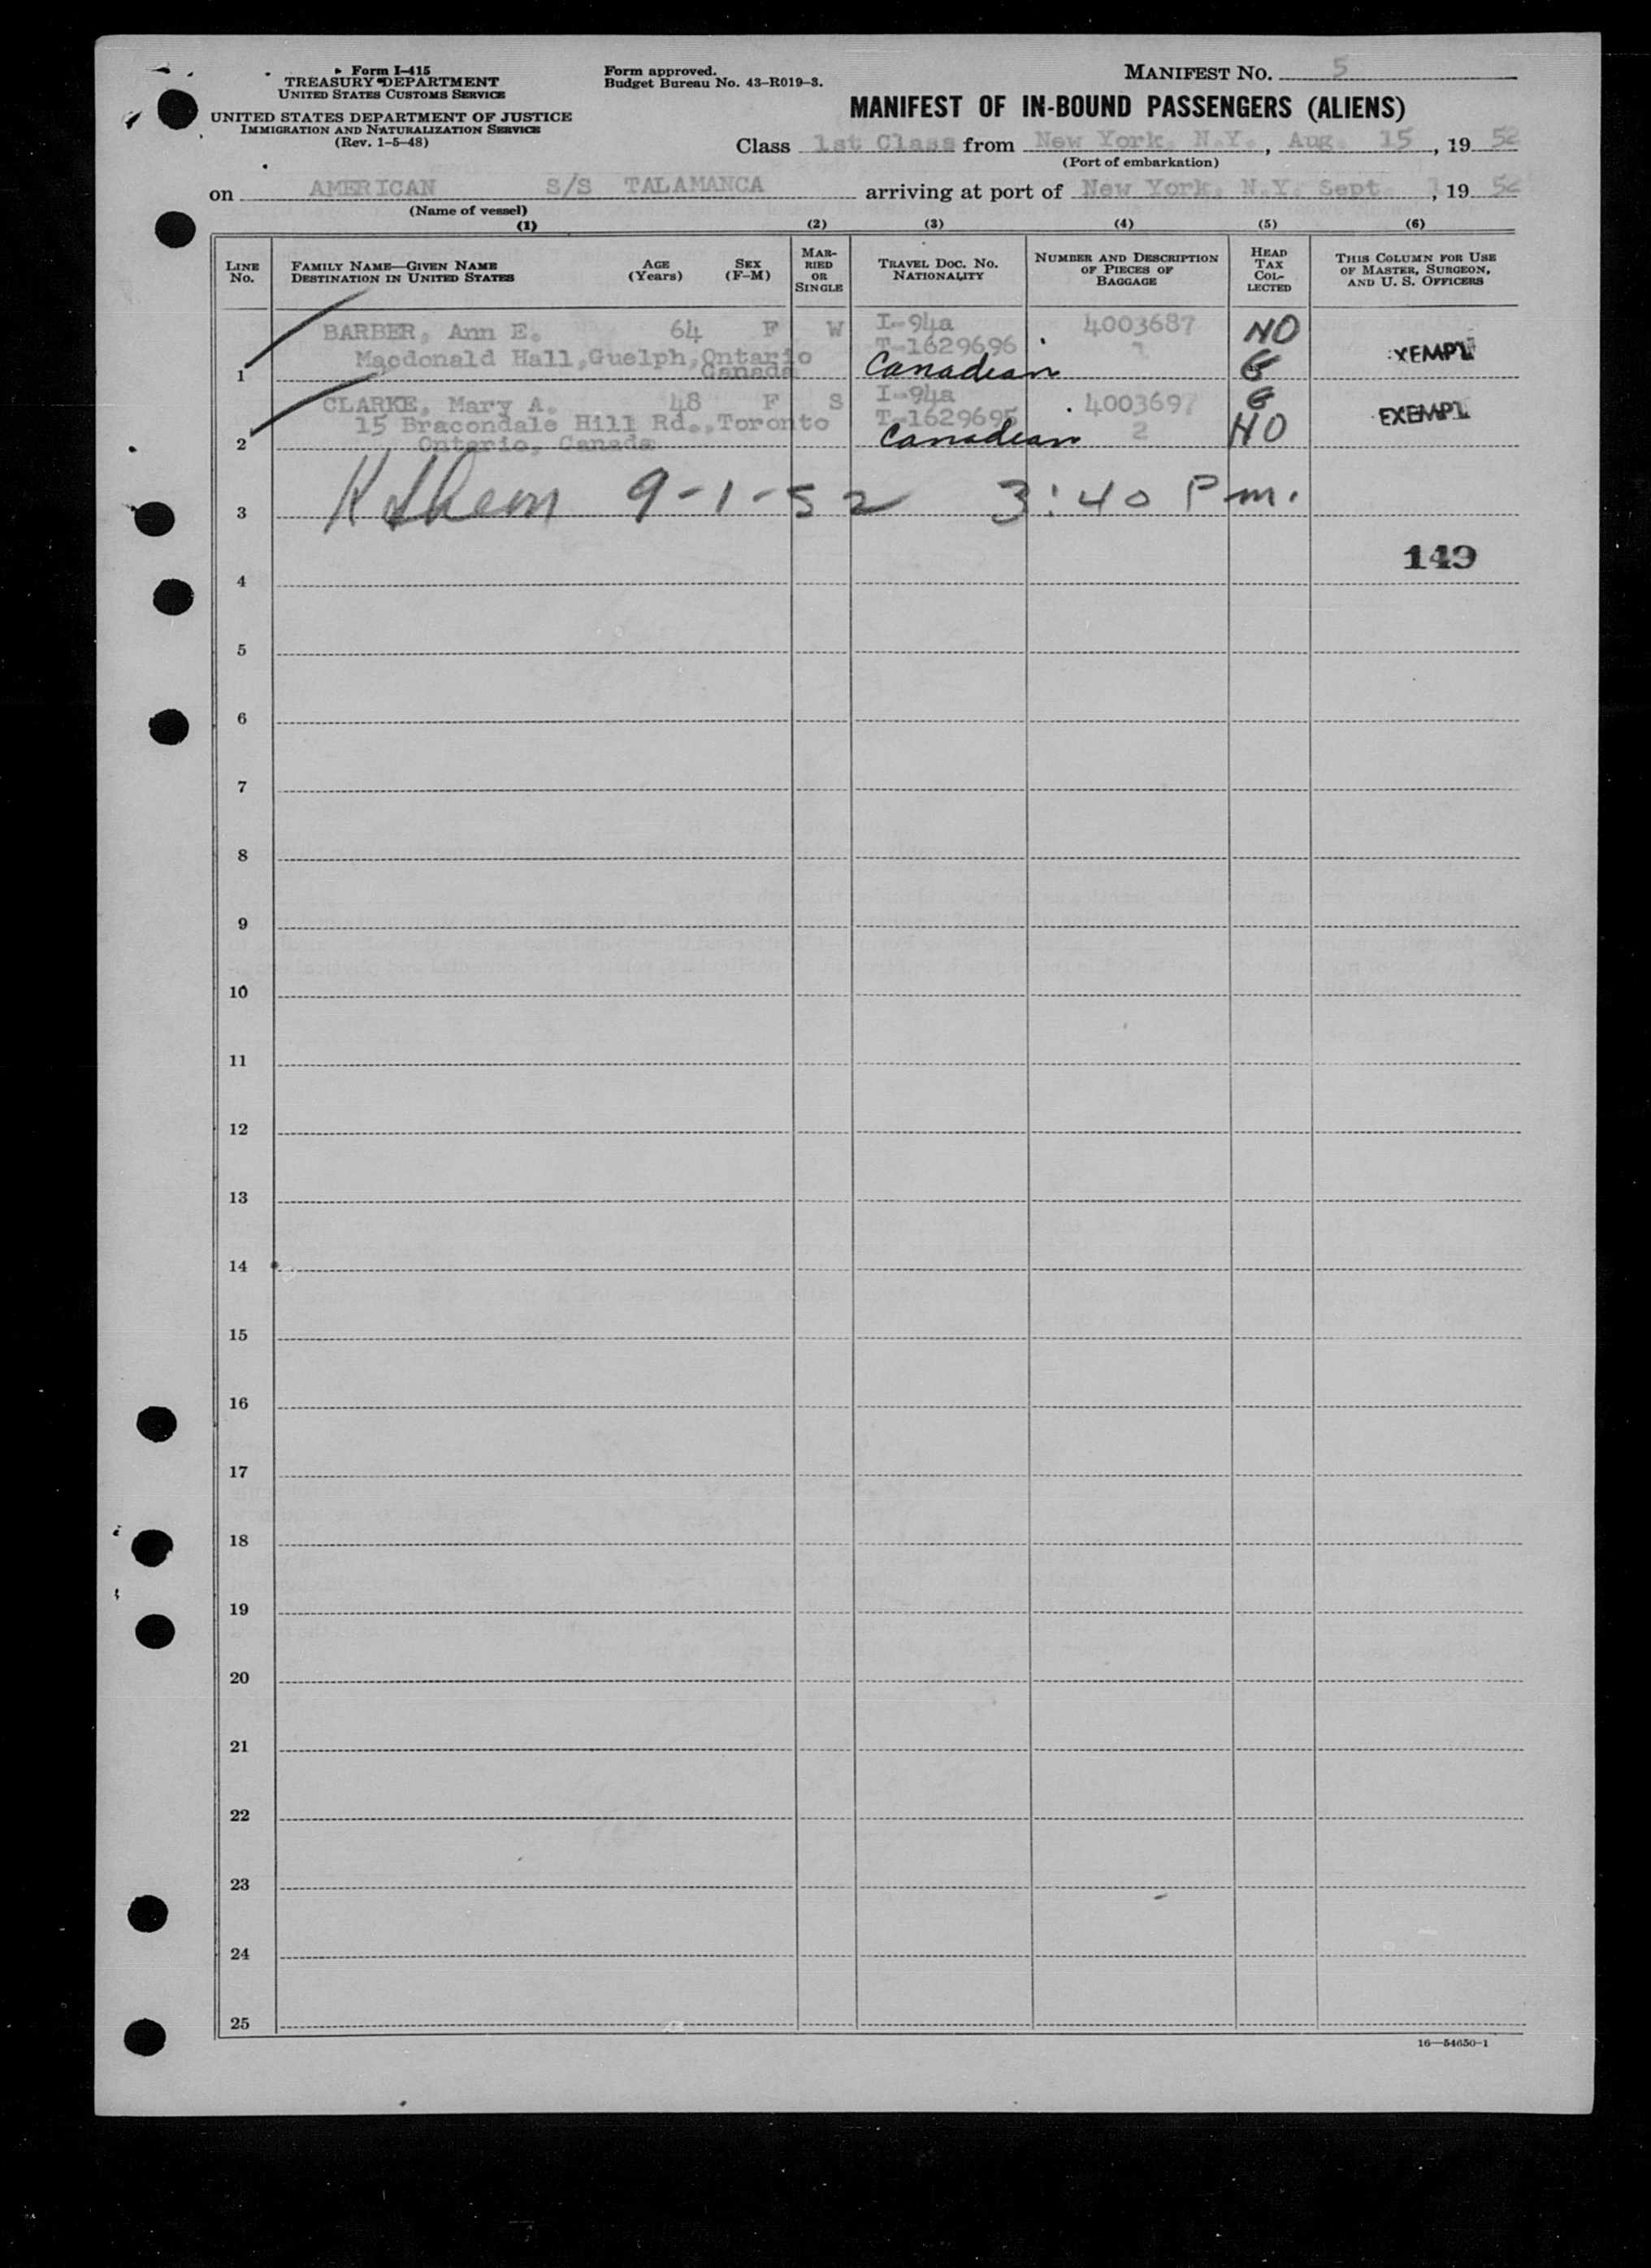 Form I-415
TREASURY DEPARTMENT
UNITED STATES CUSTOMS SERVICE
UNITED STATES DEPARTMENT OF JUSTICE
IMMIGRATION AND NATURALIZATION SERVICE
(Rev. 1-5-48)
Form approved.
Budget Bureau No. 43-R019-3.
MANIFEST NO. 5
MANIFEST OF IN-BOUND PASSENGERS (ALIENS)
Class 1st Class from New York, N.Y., Aug. 15, 19 52
(Port of embarkation)
on AMERICAN S/S TALAMANCA arriving at port of New York, N.Y. Sept. 1, 19 52
(Name of vessel)
(1) (2) (3) (4) (5) (6)
LINE No.
FAMILY NAME—GIVEN NAME
DESTINATION IN UNITED STATES
AGE (Years)
SEX (F-M)
MARRIED OR SINGLE
TRAVEL DOC. NO.
NATIONALITY
NUMBER AND DESCRIPTION OF PIECES OF BAGGAGE
HEAD TAX COLLECTED
THIS COLUMN FOR USE OF MASTER, SURGEON, AND U. S. OFFICERS
BARBER, Ann E. 64 F W I-94a 4003687 NO
Macdonald Hall, Guelph, Ontario T-1629696 1 XEMPT
1 Canada Canadian G
CLARKE, Mary A. 48 F S I-94a 4003697 G
15 Bracondale Hill Rd., Toronto T-1629695 EXEMPT
2 Ontario, Canada Canadian 2 NO
3 9-1-52 3:40 Pm.
149
4
5
6
7
8
9
10
11
12
13
14
15
16
17
18
19
20
21
22
23
24
25
16—54650-1